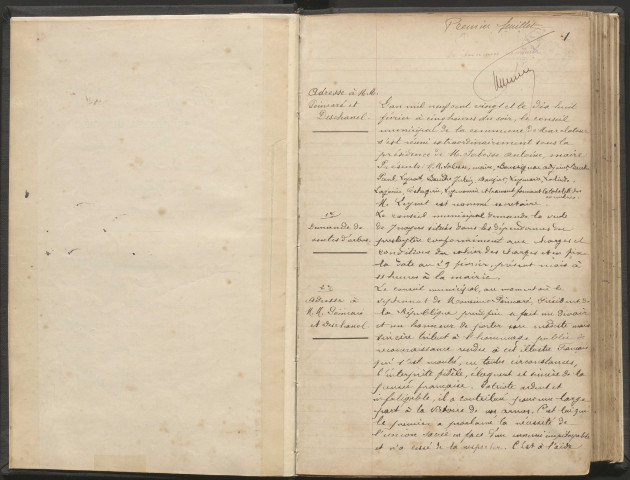 Premier feuillet
1
Adresse à M.M.
Poincaré et
Deschanel
L'an mil neuf cent vingt et le dix huit
février à cinq heures du soir, le conseil
municipal de la commune de
s'est réuni extraordinairement sous la
présidence de M. Antoine, maire
Présents: M.M. maire,
Paul,
M. Legout est nommé secrétaire
1º
Demande de
ventes d'arbres
Le conseil municipal demande la vente
de noyers situés dans les dépendances du
presbytère conformément aux charges et
conditions du cahier des charges et en fixe
la date au 29 février, présent mois à
11 heures à la mairie.
2º
Adresse à
M.M. Poincaré
et Deschanel
Le conseil municipal, au moment où le
septennat de Monsieur Poincaré, Président de
la République prend fin se fait un devoir
et un honneur de porter son modeste mais
sincère tribut à l'hommage public de
reconnaissance rendu à cet illustre
qui s'est montré, en toutes circonstances,
l'interprète fidèle, éloquent et sincère de la
pensée française. Patriote ardent et
infatigable, il a contribué pour une large
part à la Victoire de nos armes. C'est lui qui
le premier a proclamé la nécessité de
l'union sacrée en face d'un ennemi impitoyable
et n'a cessé de C'est à l'aide